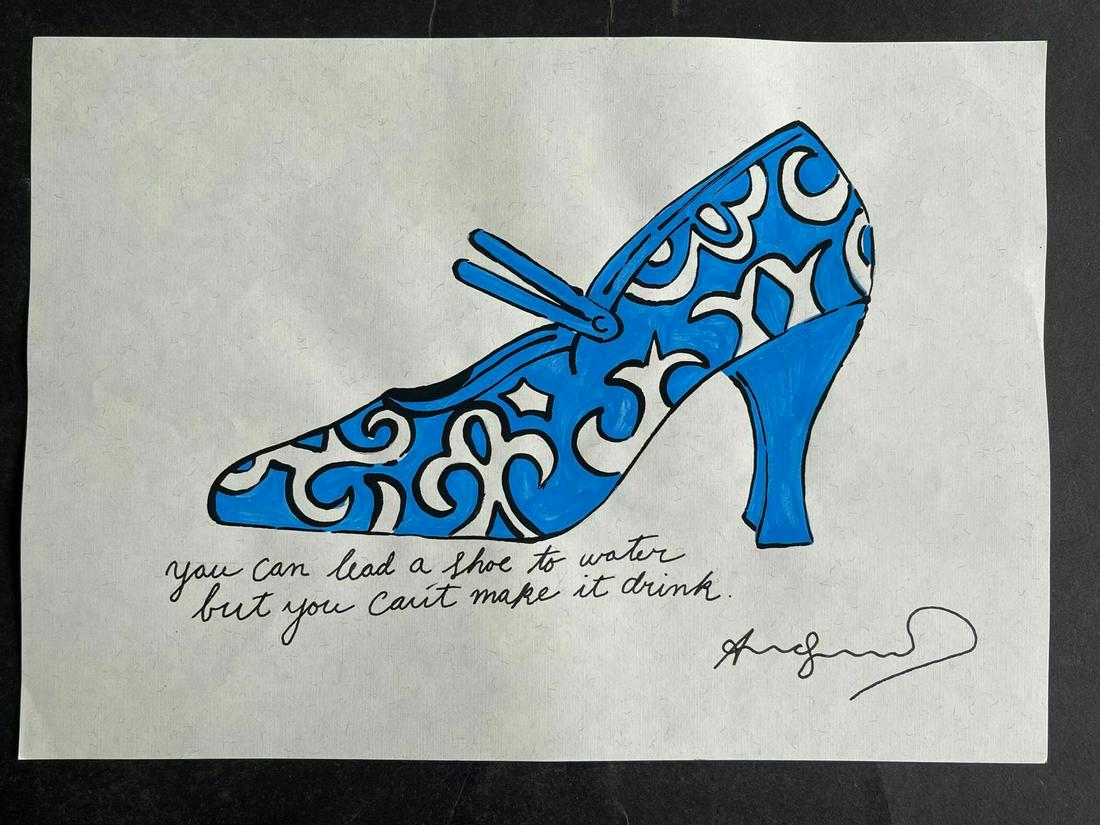 you can lead a shoe to water
but you can't make it drink.